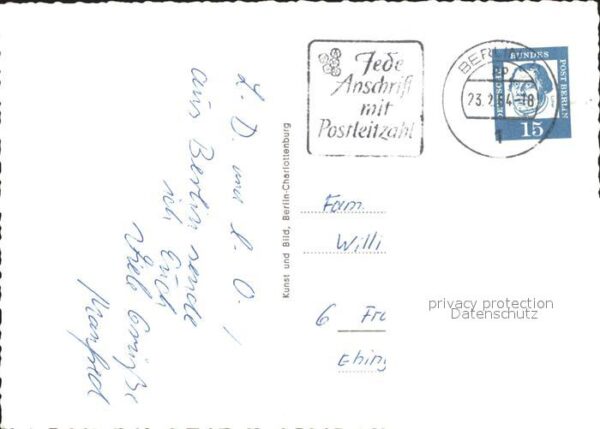 L. D. und L. O. !
aus Berlin sende
ich Euch
viele Grüße
Manfred
Kunst und Bild, Berlin-Charlottenburg
Jede
Anschrift
mit
Postleitzahl
BERLIN
23.2.64-18
1
DEUTSCHE BUNDESPOST BERLIN
15
Fam.
Willi
6 Fra
Ehing
privacy protection
Datenschutz